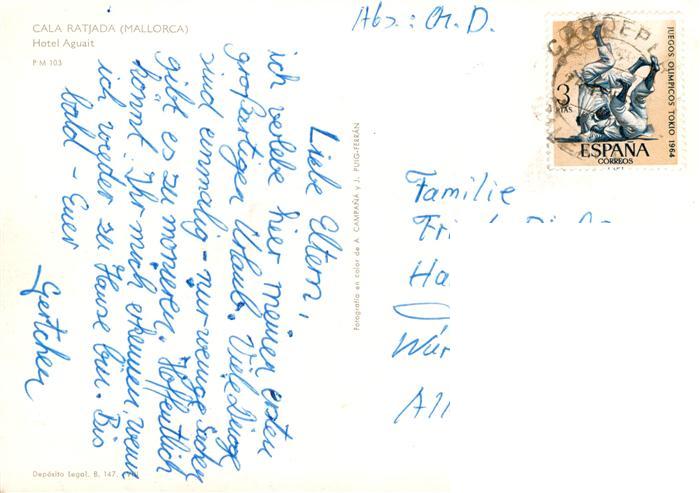 CALA RATJADA (MALLORCA)
Hotel Aguait
P M 103
Abs.: G. D.
CAPDEPERA
3
PTAS
JUEGOS OLIMPICOS TOKIO 1964
ESPAÑA
CORREOS
Liebe Eltern,
ich verlebe hier meinen ersten
großartigen Urlaub. Viele Dinge
sind einmalig - nur wenige Sachen
gibt es zu monieren. Hoffentlich
könnt Ihr mich erkennen, wenn
ich wieder zu Hause bin. Bis
bald - Euer
Gertchen
Fotografía en color de A. CAMPAÑÁ y J. PUIG-FERRÁN
Familie
Ha
Wür
All
Depósito Legal, B. 147.